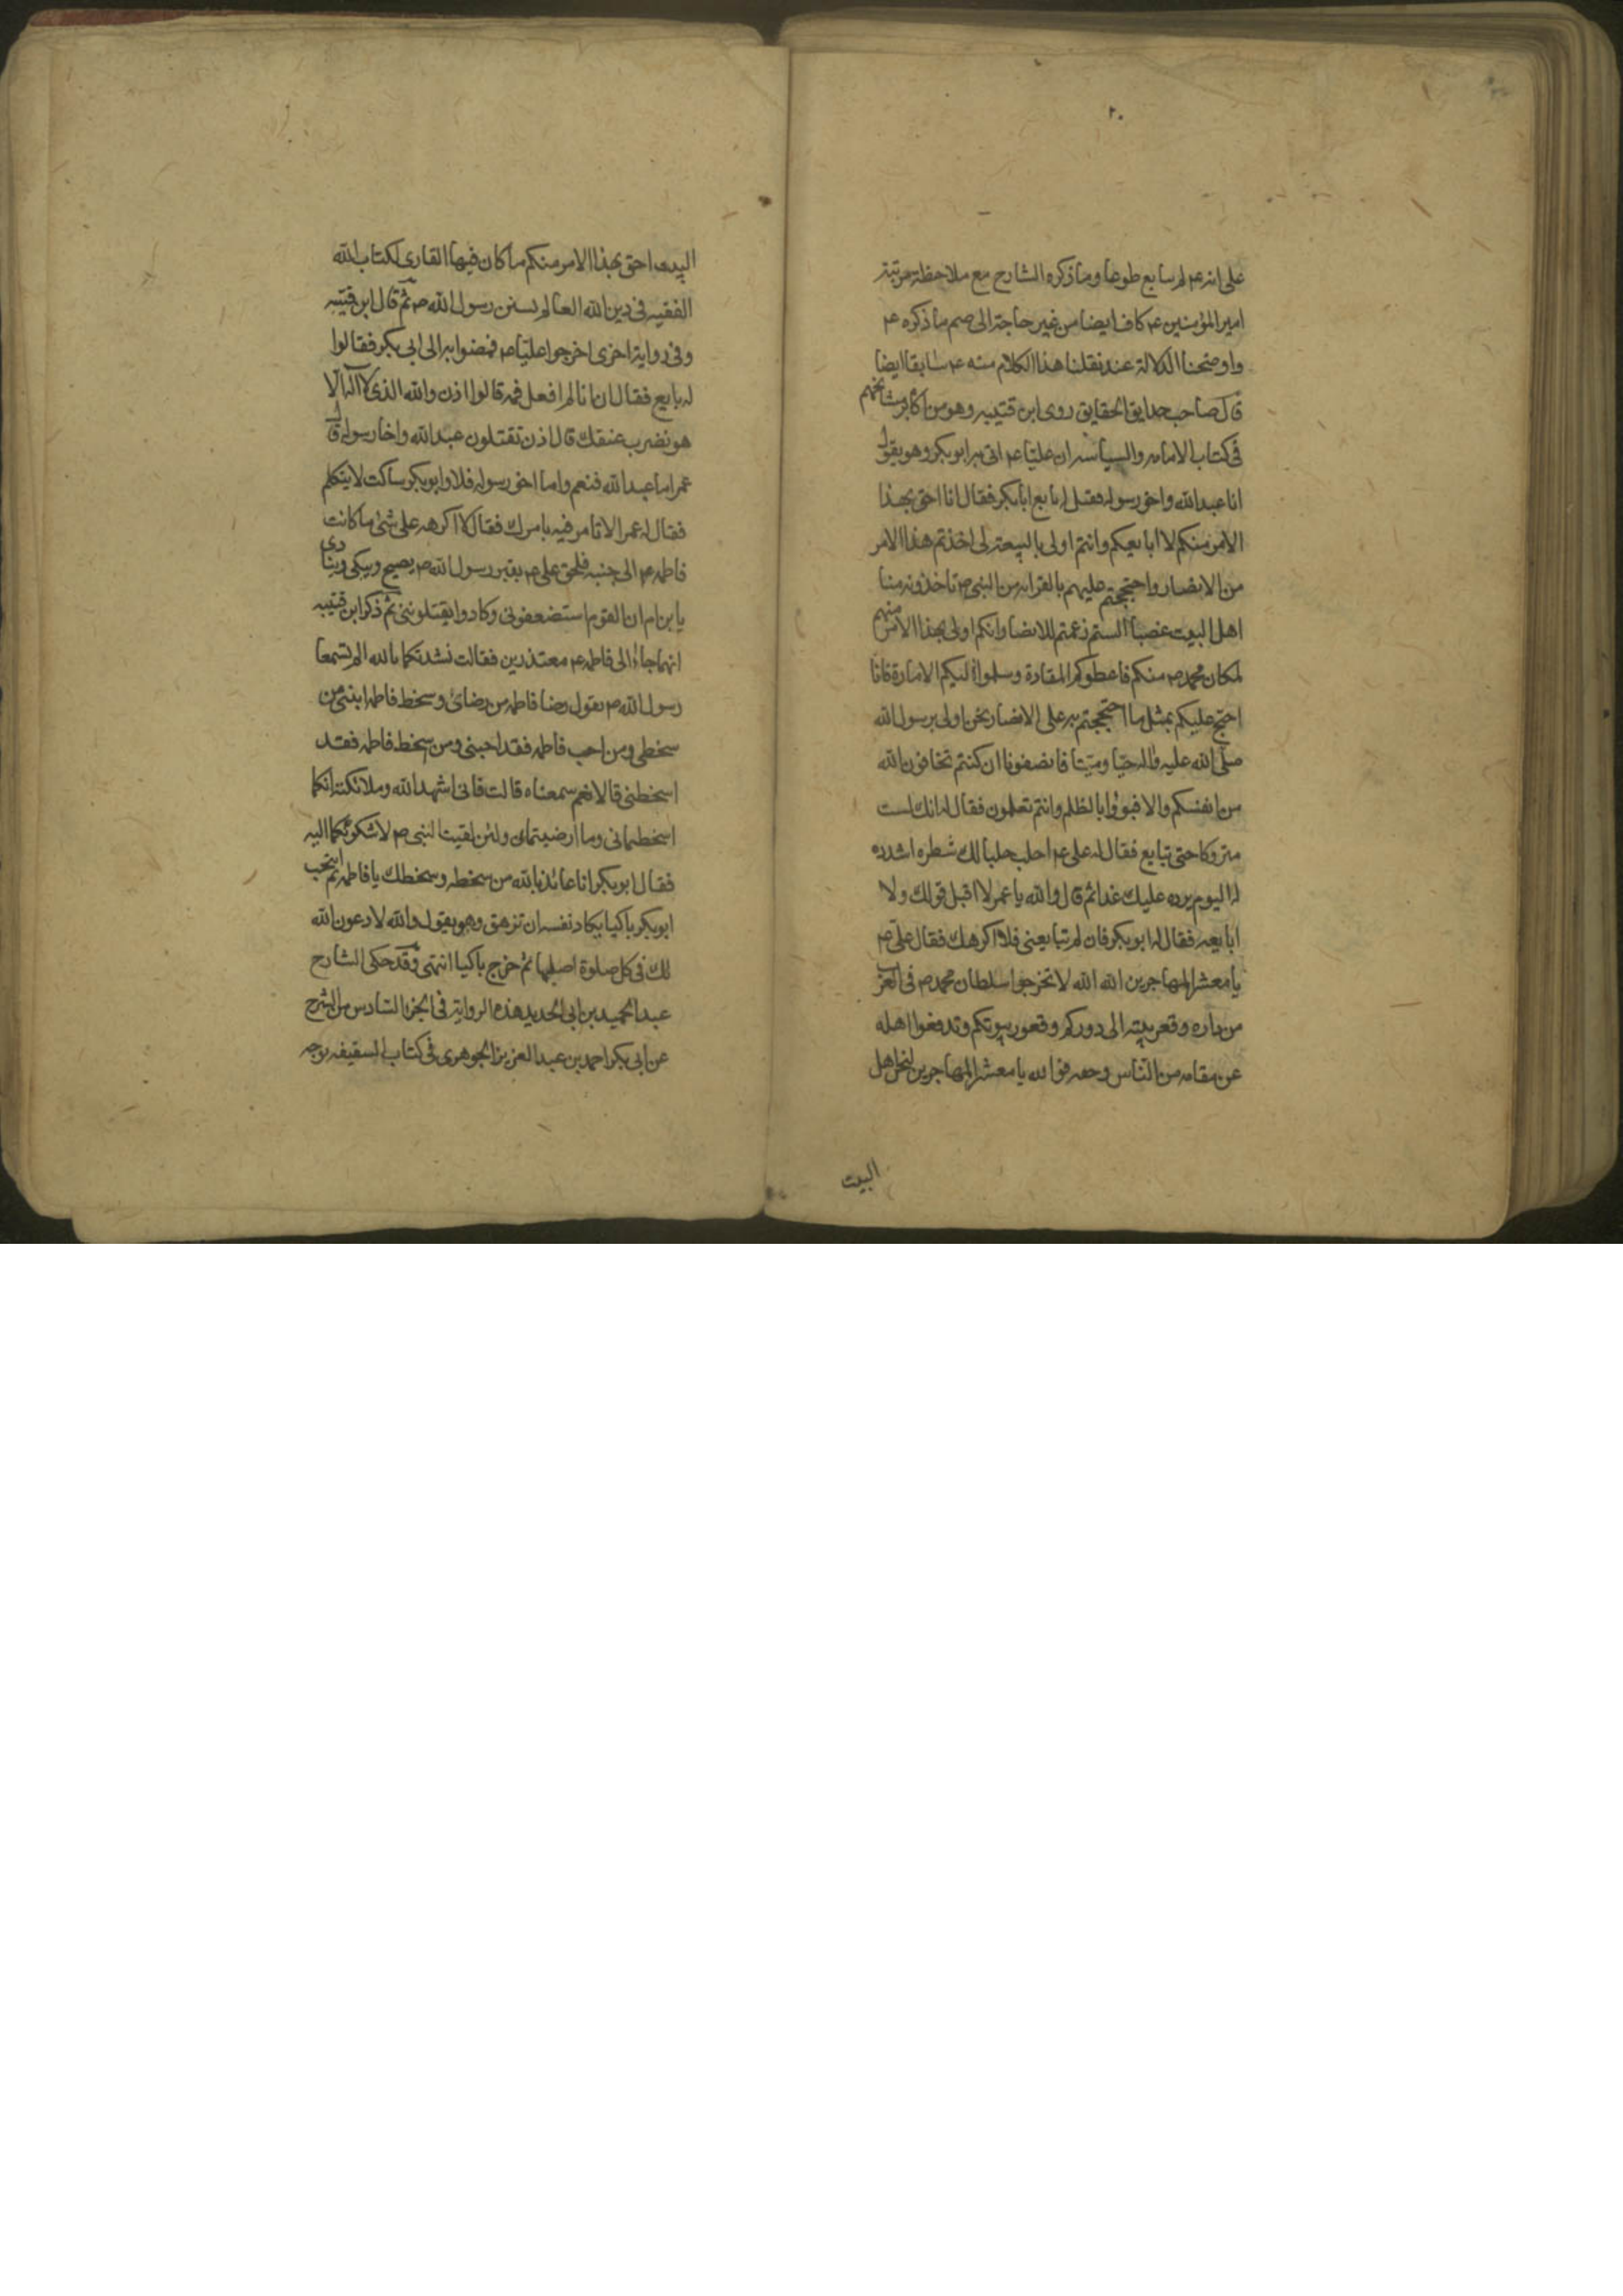 ٢٠
على انه ع لم يبايع طوعا وما ذكره الشارح مع ملاحظة مرتبة
امير المؤمنين ع كاف ايضا من غير حاجة الى ضم ما ذكره ع
واوضحنا الدلالة عند نقلنا هذا الكلام منه ع سابقا ايضا
قال صاحب حدايق الحقايق روى ابن قتيبه وهو من اكابر مشايخهم
فى كتاب الامامه والسياسه ان عليّا ع اتى به ابو بكر وهو يقول
انا عبد الله واخى رسوله فقيل له بايع ابابكر فقال انا احق بهذا
الامر منكم لا ابايعكم وانتم اولى بالبيعة لى اخذتم هذا الامر
من الانصار واحتججتم عليهم بالقرابه من النبى ص تاخذونه منا
اهل البيت غصبا ألستم زعمتم للانصار انكم اولى بهذا الامر منهم
لمكان محمد ص منكم فاعطوكم المقادة وسلموا اليكم الامارة فانا
احتج عليكم بمثل ما احتججتم به على الانصار نحن اولى برسول الله
صلى الله عليه واله حيّا وميّتا فانصفونا ان كنتم تخافون الله
من انفسكم والا فبوؤا بالظلم وانتم تعلمون فقال له انك لست
متروكا حتى تبايع فقال له على ع احلب حلبا لك شطره اشدده
له اليوم يرده عليك غدا ثم قال والله يا عمر لا اقبل قولك ولا
ابايعه فقال له ابو بكر فان لم تبايعنى فلا اكرهك فقال على ع
يا معشر المهاجرين الله الله لا تخرجوا سلطان محمد ص فى العرب
من داره وقعر بيته الى دوركم وقعور بيوتكم وتدفعوا اهله
عن مقامه من الناس وحقه فو الله يا معشر المهاجرين لنحن اهل
البيت
البيت احق بهذا الامر منكم ما كان فيها القارى لكتاب الله
الفقيه فى دين الله العالم بسنن رسول الله ص ثم قال ابن قتيبه
وفى رواية اخرى اخرجوا عليّا ع فمضوا به الى ابى بكر فقالوا
له بايع فقال ان انا لم افعل فمه قالوا اذن والله الذى لا اله الا
هو نضرب عنقك قال اذن تقتلون عبد الله واخا رسوله قال
عمر اما عبد الله فنعم واما اخى رسوله فلا وابو بكر ساكت لا يتكلم
فقال له عمر الا تامر فيه بامرك فقال لا اكرهه على شئ ما كانت
فاطمه ع الى جنبه فلحق على ع بقبر رسول الله ص يصيح ويبكى وينادى
يا بن ام ان القوم استضعفونى وكادوا يقتلوننى ثم ذكر ابن قتيبه
انهما جاءا الى فاطمه ع معتذرين فقالت نشدتكما بالله الم تسمعا
رسول الله ص يقول رضا فاطمه من رضائ وسخط فاطمه ابنتى من
سخطى ومن احب فاطمه فقد احبنى ومن سخط فاطمه فقد
اسخطنى قالا نعم سمعناه قالت فانى اشهد الله وملائكته انكما
اسخطتمانى وما ارضيتمانى ولئن لقيت النبى ص لاشكونّكما اليه
فقال ابو بكر انا عائذ بالله من سخطه وسخطك يا فاطمه ثم انتحب
ابو بكر باكيا يكاد نفسه ان تزهق وهو يقول والله لادعون الله
لك فى كل صلوة اصليها ثم خرج باكيا انتهى وقد حكى الشارح
عبد الحميد بن ابى الحديد هذه الرواية فى الجزء السادس من الشرح
عن ابى بكر احمد بن عبد العزيز الجوهرى فى كتاب السقيفه بوجه